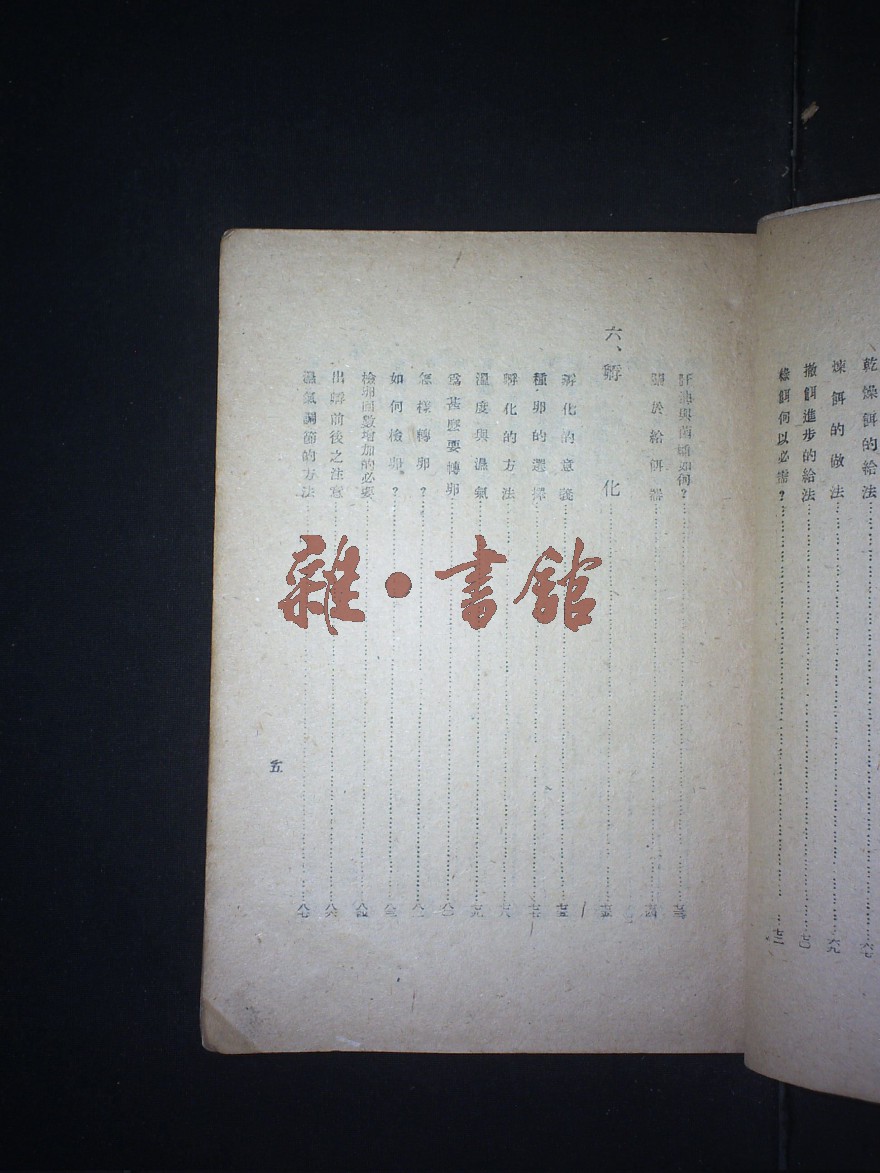 乾燥餌的給法……六七
煉餌的做法……六九
撒餌進步的給法……七〇
綠餌何以必需？……七二
與 如何？……七三
關於給餌器……七四
六、孵化……七五
孵化的意義……七五
種卵的選擇……七七
孵化的方法……七八
溫度與濕氣……七九
為甚麼要轉卵……八〇
怎樣轉卵？……八二
如何檢卵？……八三
檢卵回數增加的必要……八四
出孵前後之注意……八六
濕氣調節的方法……八七
五
雜·書館